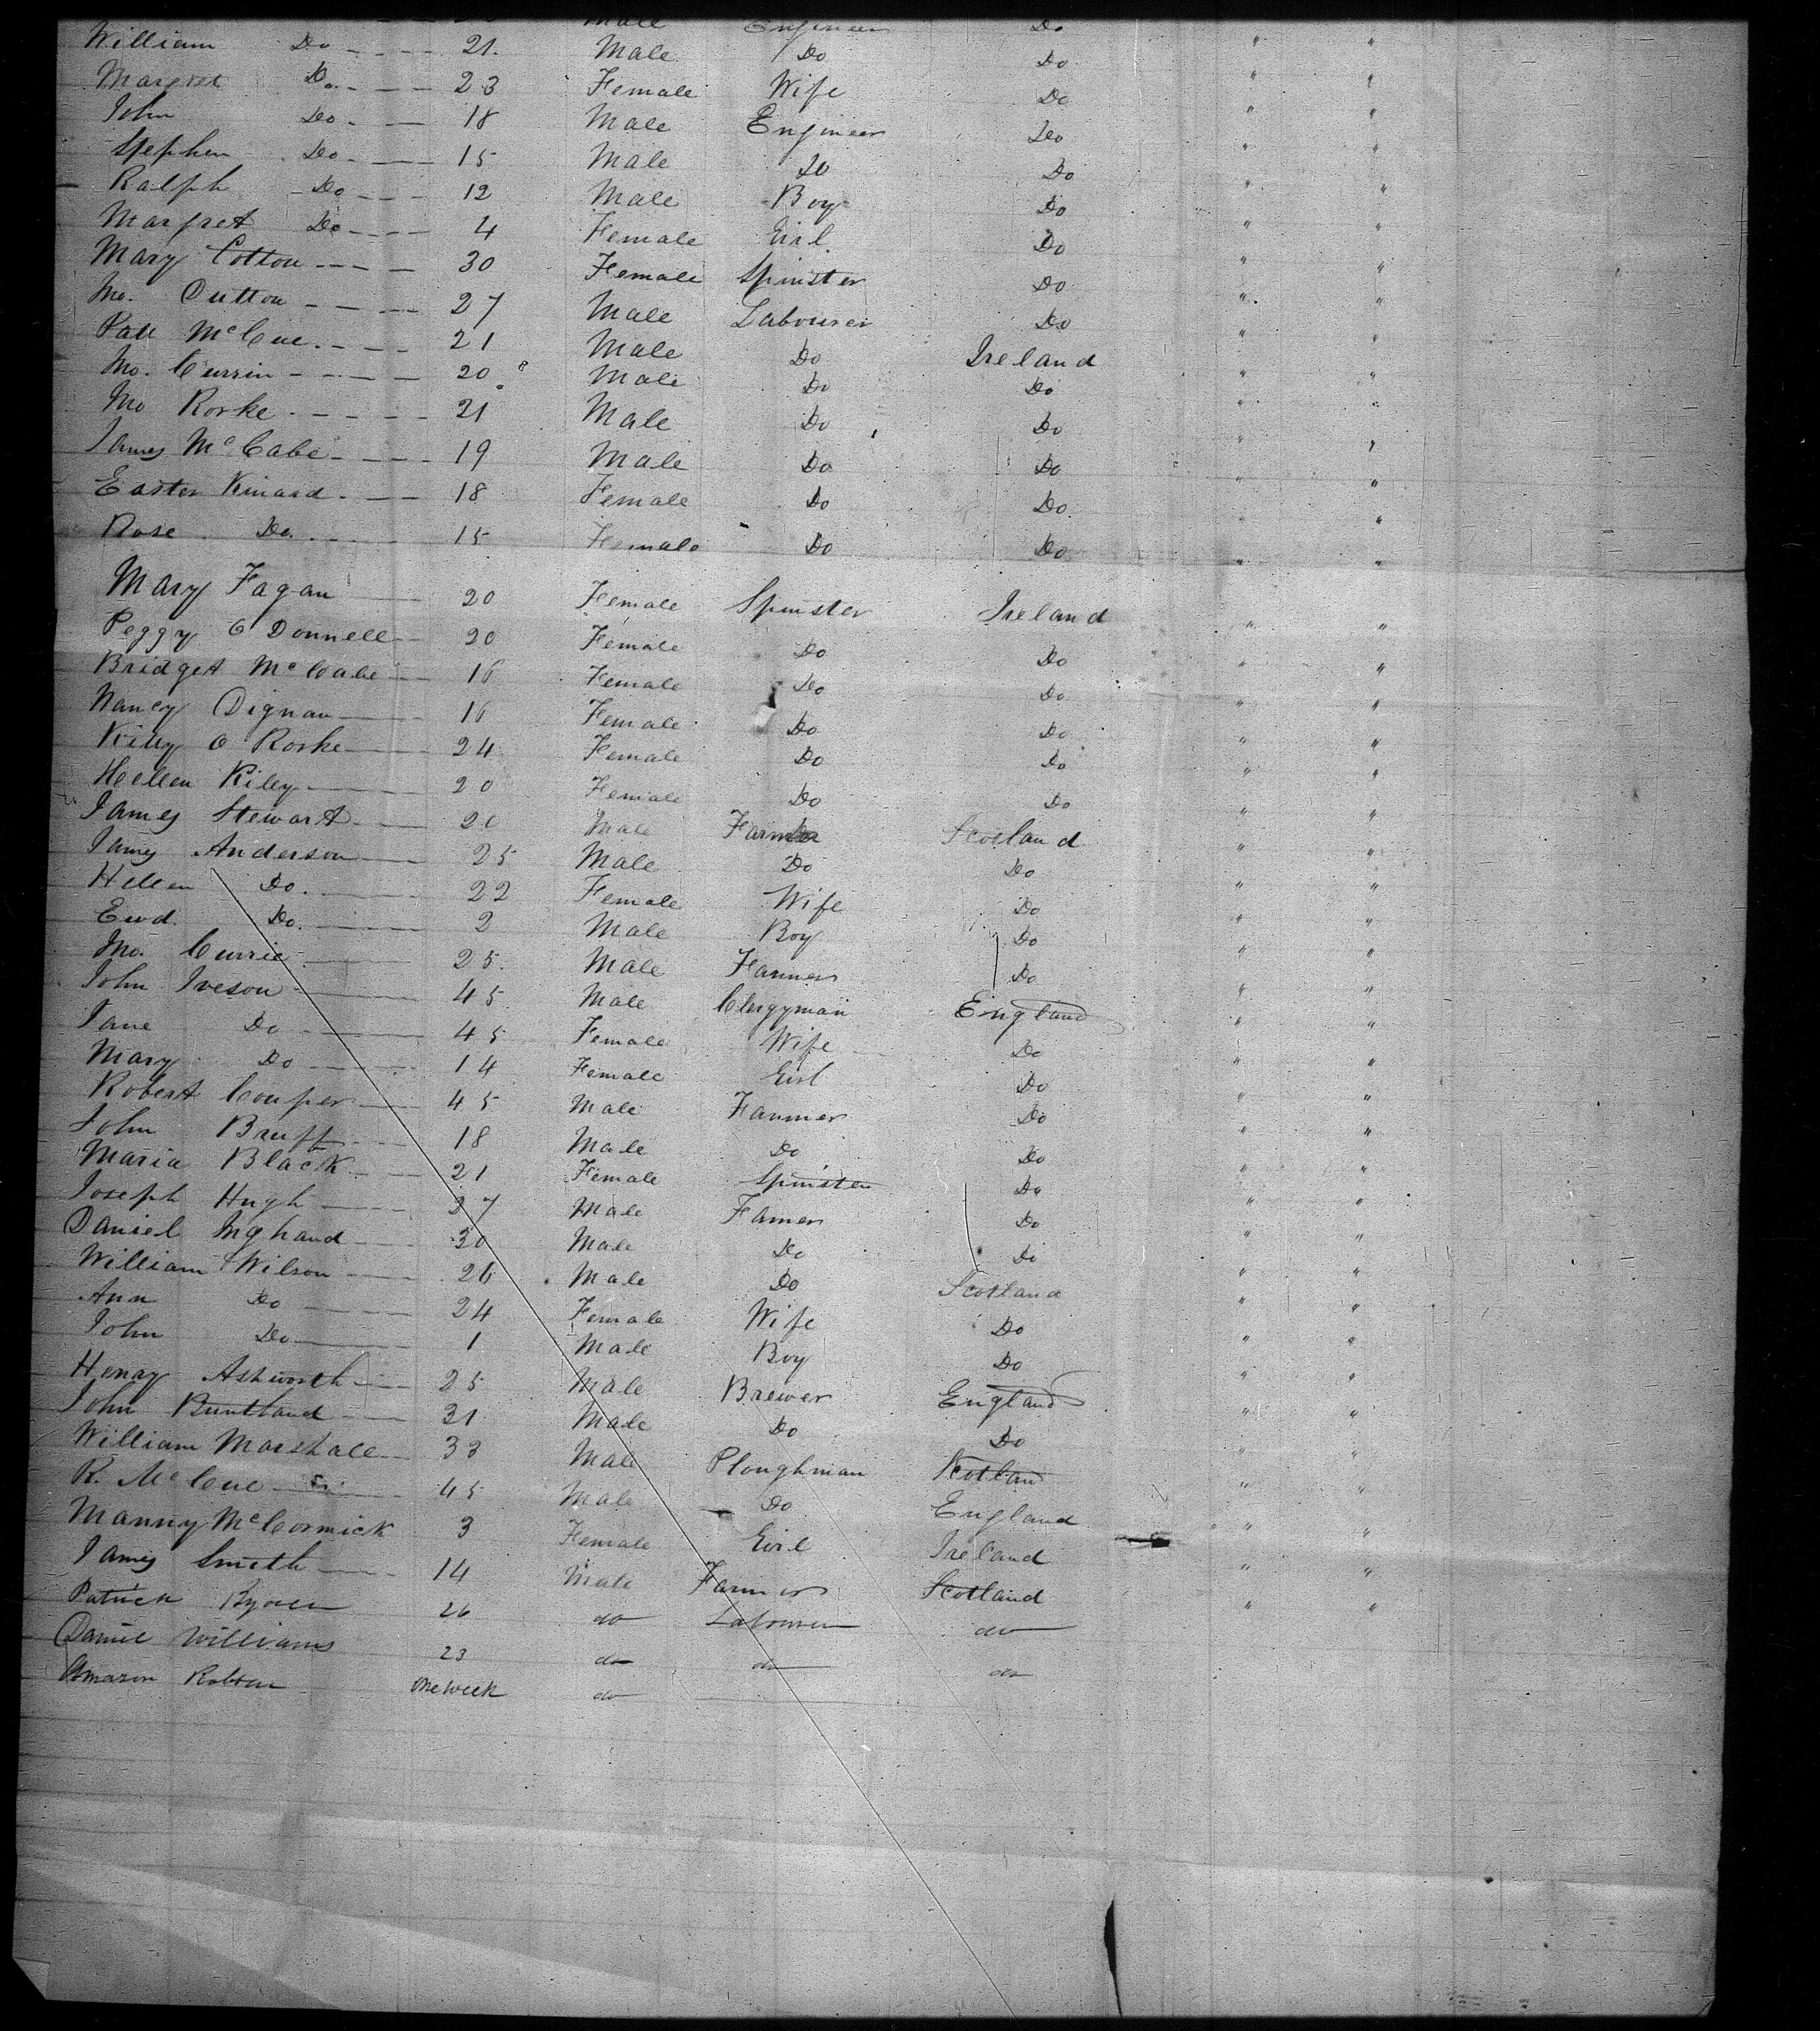 Male Engineer Do
William Do 21. Male Do Do " "
Margret Do. 23 Female Wife Do " "
John Do. 18 Male Engineer Do " "
Stephen Do 15 Male Do Do " "
Ralph Do 12 Male Boy Do " "
Margret Do 4 Female Girl Do " "
Mary Cotton 30 Female Spinster Do " "
Jno. Dutton 27 Male Labourer Do " "
Patt McCue. 21 Male Do Ireland " "
Jno. Currin 20 Male Do Do " "
Jno Rorke 21 Male Do Do " "
James McCabe 19 Male Do Do " "
Easter Kinard 18 Female Do Do " "
Rose Do. 15 Female Do Do " "
Mary Fagan 20 Female Spinster Ireland " "
Peggy O Donnell 20 Female Do Do " "
Bridget McCabe 16 Female Do Do " "
Nancy Dignan 16 Female Do Do " "
Kitty O Rorke 24 Female Do Do " "
Hellen Riley 20 Female Do Do " "
James Stewart 26 Male Farmer Scotland " "
James Anderson 25 Male Do Do " "
Hellen Do. 22 Female Wife Do " "
Ewd. Do. 2 Male Boy Do " "
Jno. Currie 25. Male Farmer Do " "
John Iveson 45 Male Clergyman England " "
Jane Do 45 Female Wife Do " "
Mary Do 14 Female Girl Do " "
Robert Couper 45 Male Farmer Do " "
John Bruff 18 Male Do Do " "
Maria Black 21 Female Spinster Do " "
Joseph Hugh 37 Male Famer Do " "
Daniel Inghand 30 Male Do Do " "
William Wilson 26 Male Do Scotland " "
Ann Do 24 Female Wife Do " "
John Do 1 Male Boy Do " "
Henry Ashworth 25 Male Brewer England " "
John Buntland 31 Male Do Do " "
William Marshall 33 Male Ploughman Scotland " "
R. McCue 45 Male Do England " "
Manny McCormick 3 Female Girl Ireland " "
James Smith 14 Male Farmer Scotland " "
Patrick 26 do Labourer do " "
Daniel Williams 23 do do do
Amazon one week do